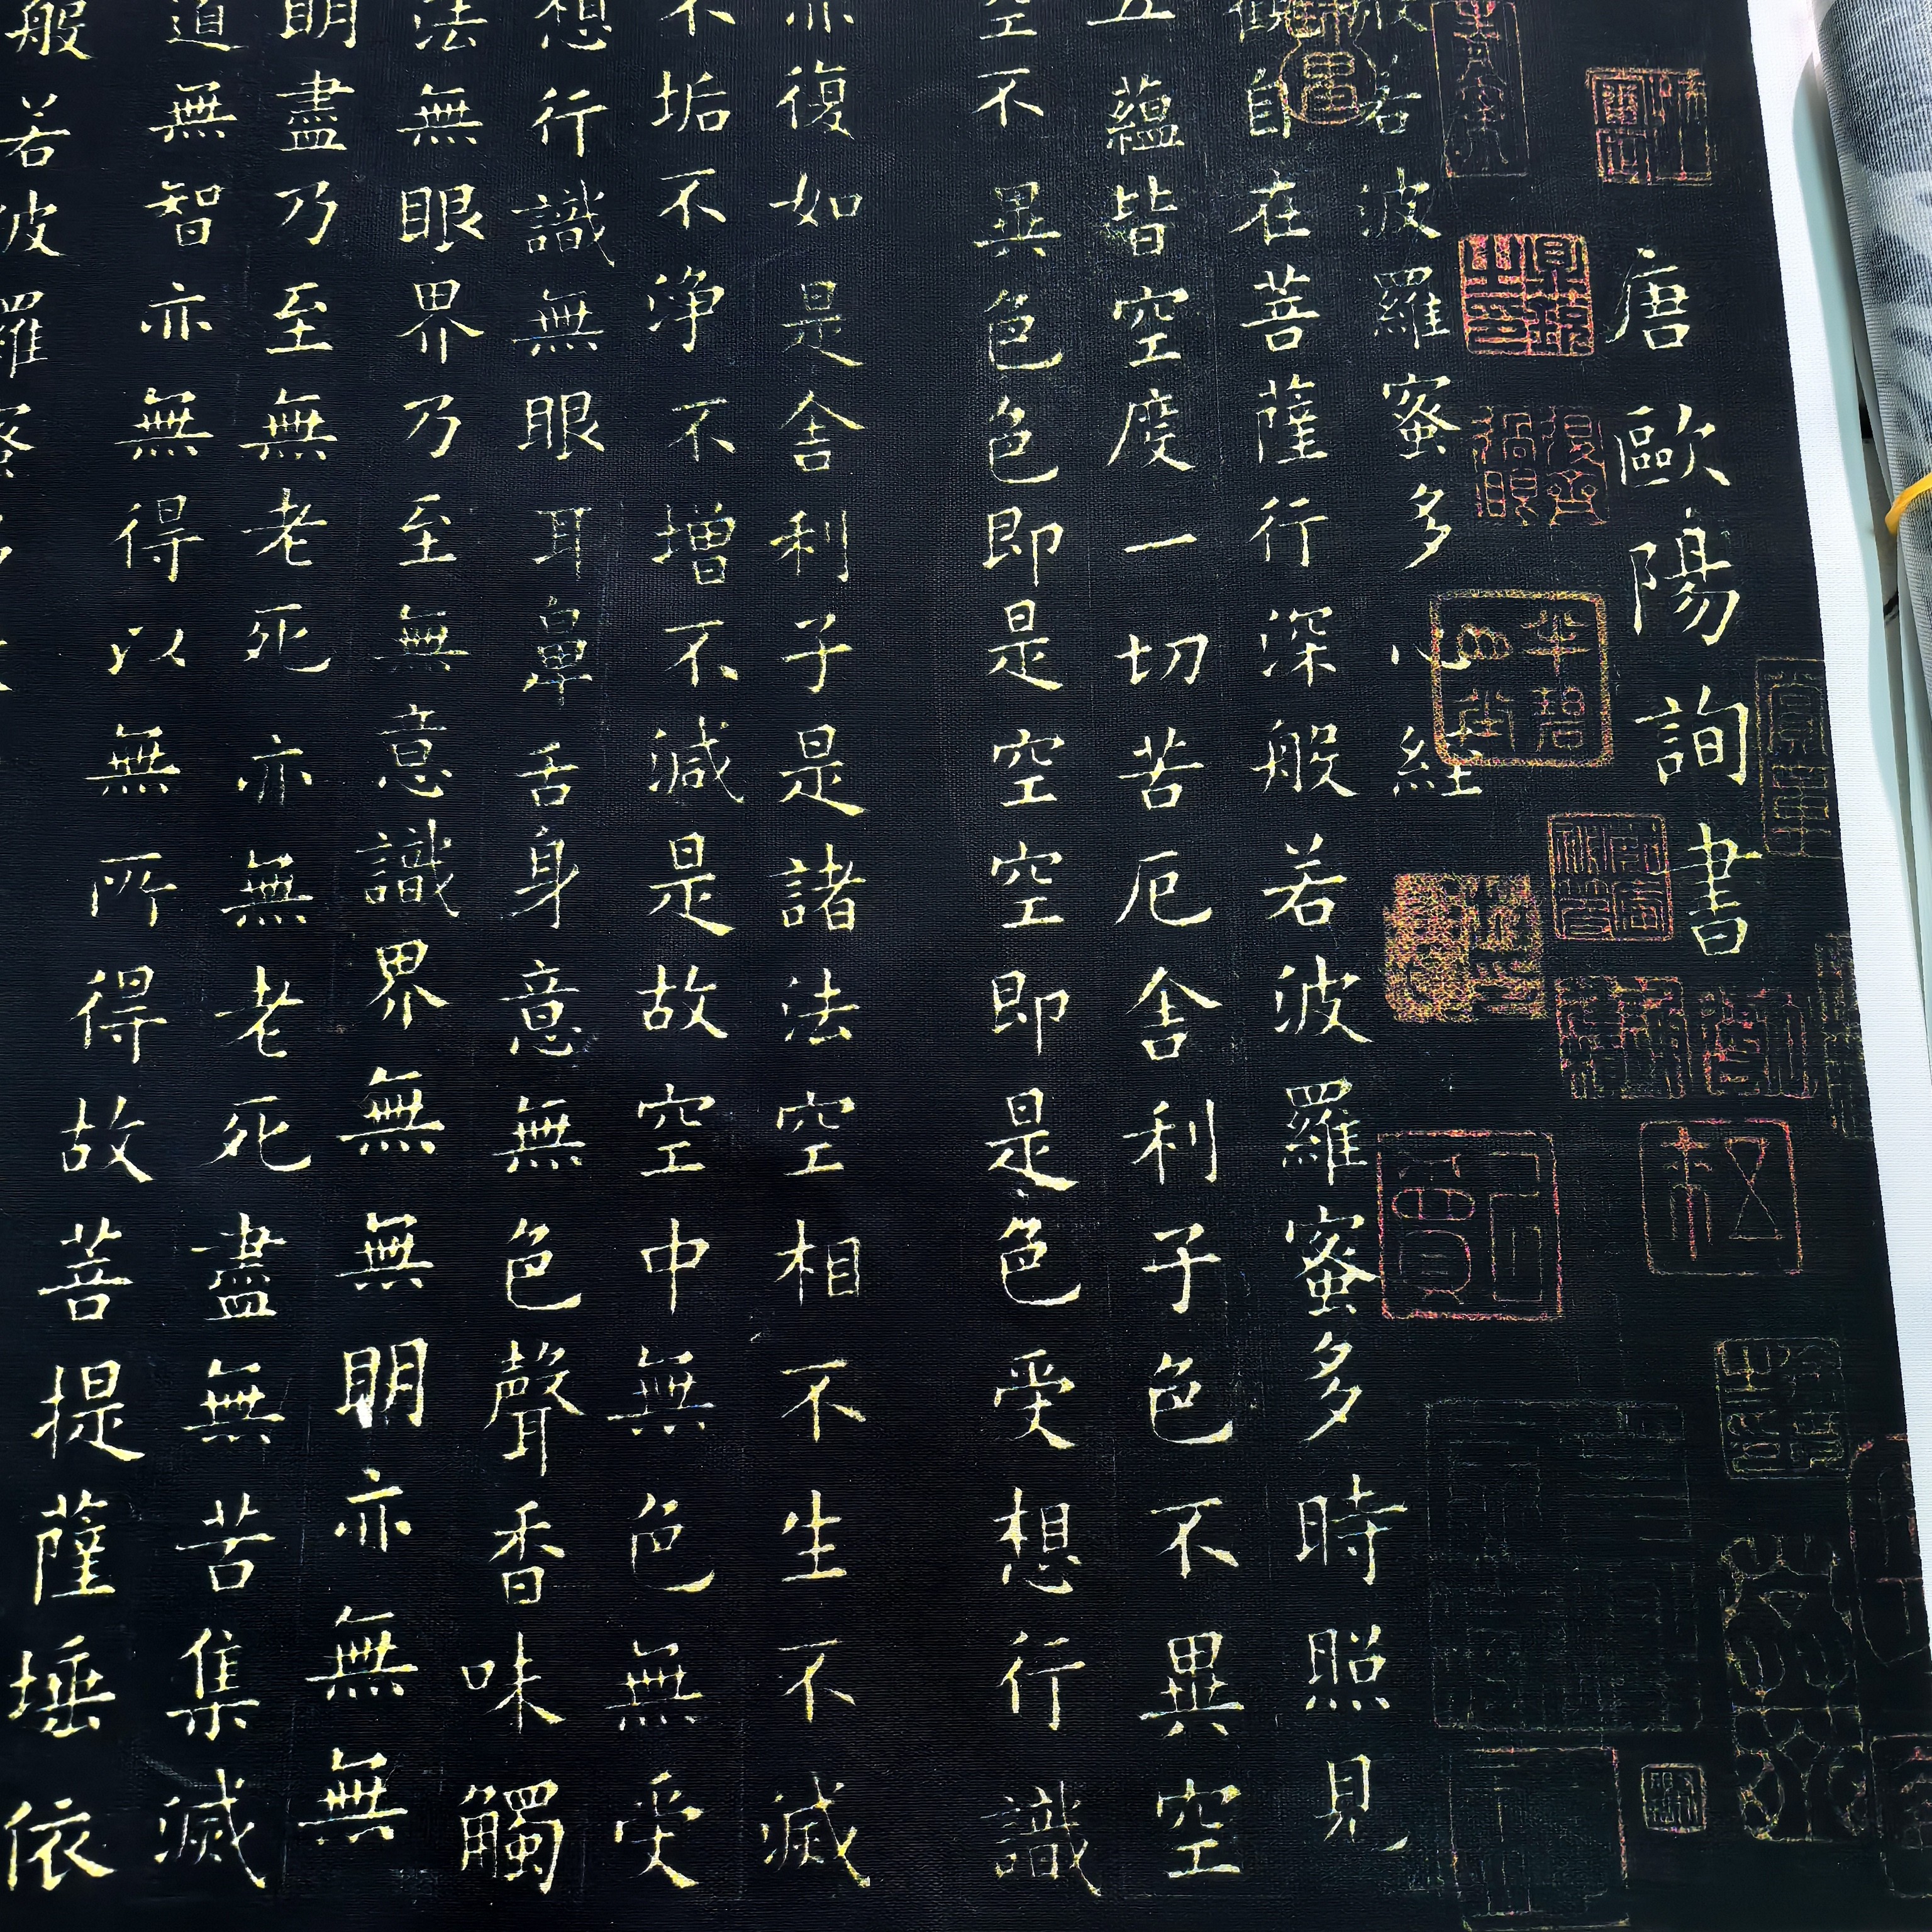 唐歐陽詢書
般若波羅蜜多心經
觀自在菩薩行深般若波羅蜜多時照見
五蘊皆空度一切苦厄舍利子色不異空
空不異色色即是空空即是色受想行識
亦復如是舍利子是諸法空相不生不滅
不垢不淨不增不減是故空中無色無受
想行識無眼耳鼻舌身意無色聲香味觸
法無眼界乃至無意識界無無明亦無無
明盡乃至無老死亦無老死盡無苦集滅
道無智亦無得以無所得故菩提薩埵依
般若波羅蜜